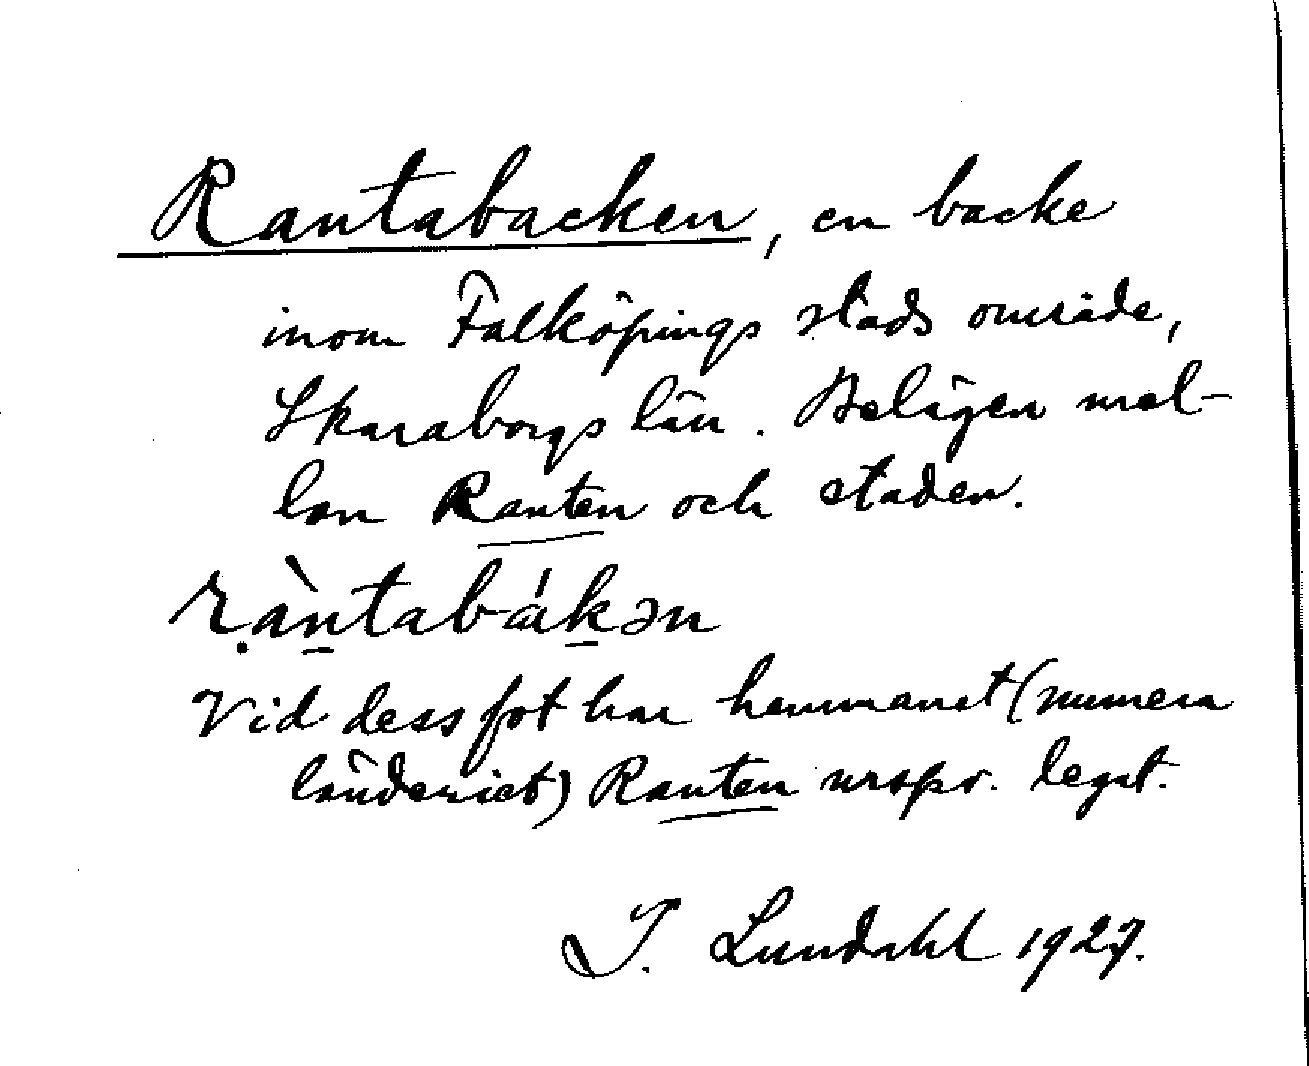 Rantabacken, en backe
inom Falköpings stads område,
Skaraborgs län. Belägen mel-
lan Ranten och staden.
ṛàn̠tabák̠ən
Vid dess fot har hemmanet (numera
länderiet) Ranten urspr. legat.
I. Lundahl 1927.